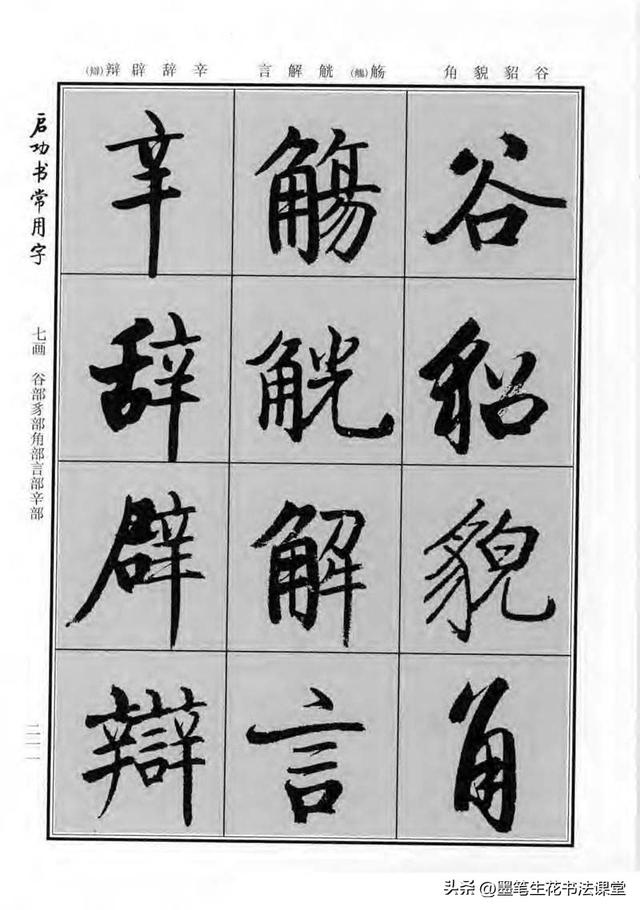 谷貂貌角
觞(觴)觥解言
辛辞辟辩(辯)
谷
貂
貌
角
觴
觥
解
言
辛
辞
辟
辯
启功书常用字
七画 谷部豸部角部言部辛部
头条 @墨笔生花书法课堂